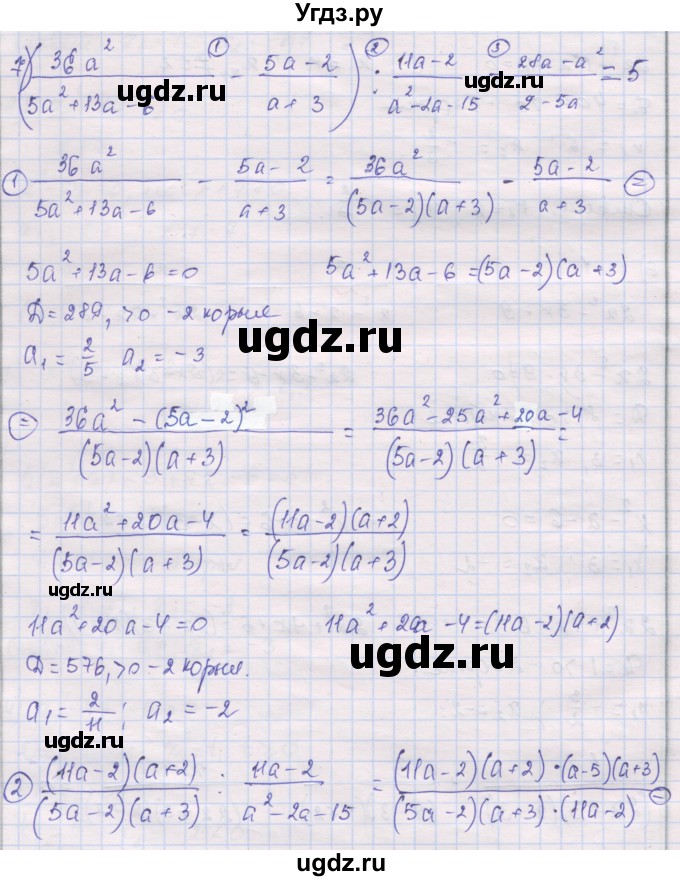 Угдз.ру
7) (36a²/(5a²+13a-6) - (5a-2)/(a+3)) : (11a-2)/(a²-2a-15) - (28a-a²)/(2-5a) = 5
ugdz.ru ugdz.ru
① 36a²/(5a²+13a-6) - (5a-2)/(a+3) = 36a²/((5a-2)(a+3)) - (5a-2)/(a+3) =
5a²+13a-6=0 5a²+13a-6=(5a-2)(a+3)
Д=289, >0 - 2 корня
ugdz.ru
a₁=2/5 a₂=-3
ugdz.ru
= (36a²-(5a-2)²)/((5a-2)(a+3)) = (36a²-25a²+20a-4)/((5a-2)(a+3)) =
ugdz.ru
= (11a²+20a-4)/((5a-2)(a+3)) = ((11a-2)(a+2))/((5a-2)(a+3))
ugdz.ru
11a²+20a-4=0 11a²+20a-4=(11a-2)(a+2)
Д=576, >0 - 2 корня.
ugdz.ru
a₁=2/11; a₂=-2
ugdz.ru
② ((11a-2)(a+2))/((5a-2)(a+3)) : (11a-2)/(a²-2a-15) = ((11a-2)(a+2)·(a-5)(a+3))/((5a-2)(a+3)·(11a-2)) =
ugdz.ru
ugdz.ru